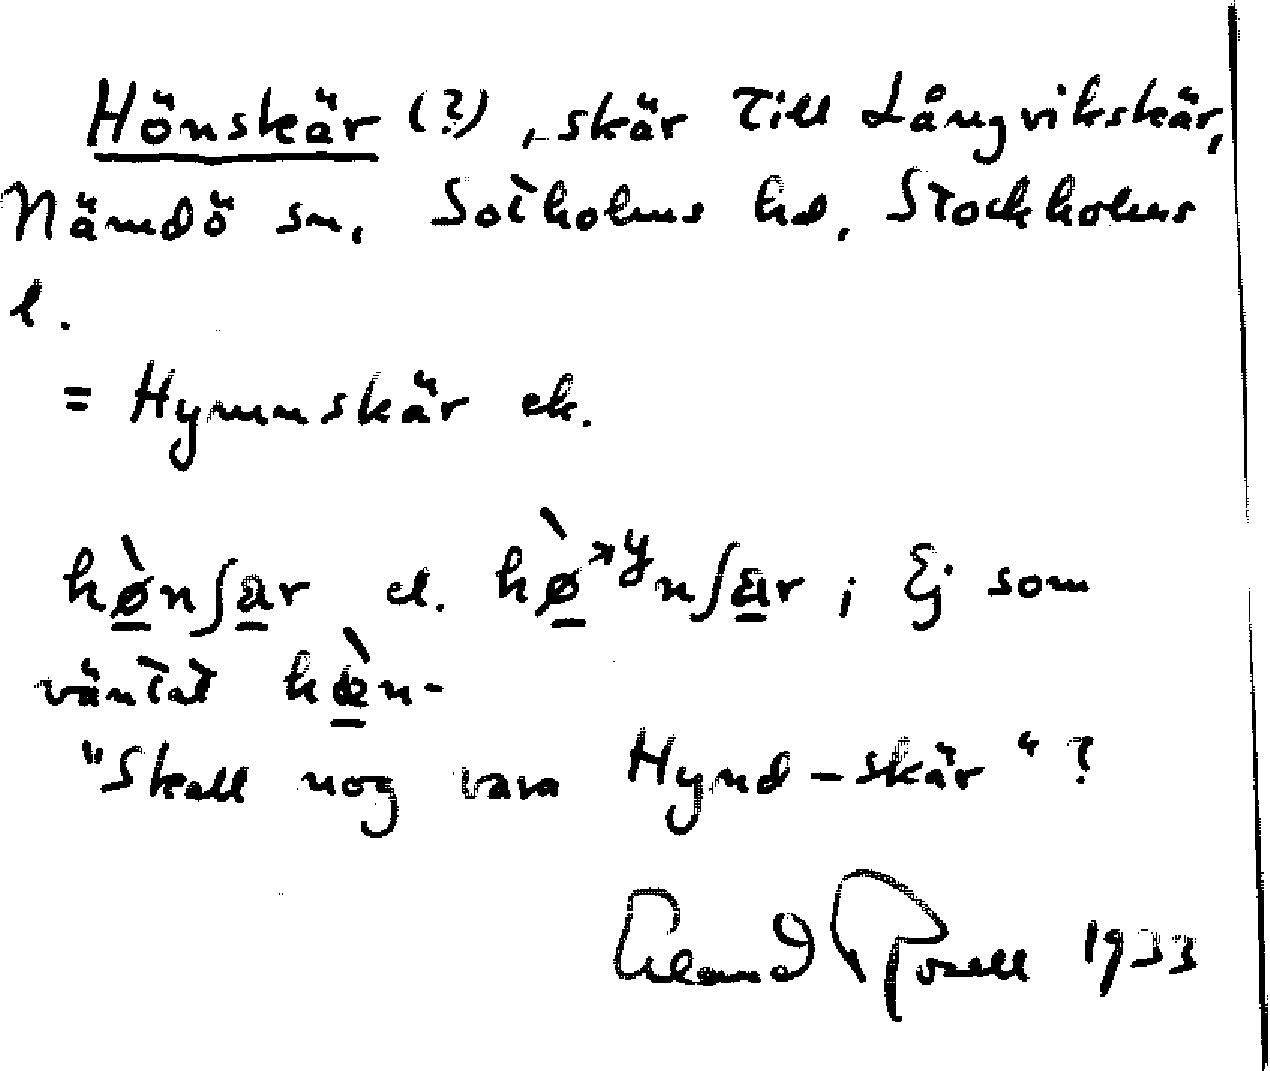 Hönskär (?), skär till Långvikskär,
Nämdö sn, Sotholms hd, Stockholms
l.
= Hymnskär ek.
hø̀nʃär el. hø̀ʸnʃär ; Ej som
väntat hœ̀n-
"Skall nog vara Hynd-skär"?
Erland Rosell 1933